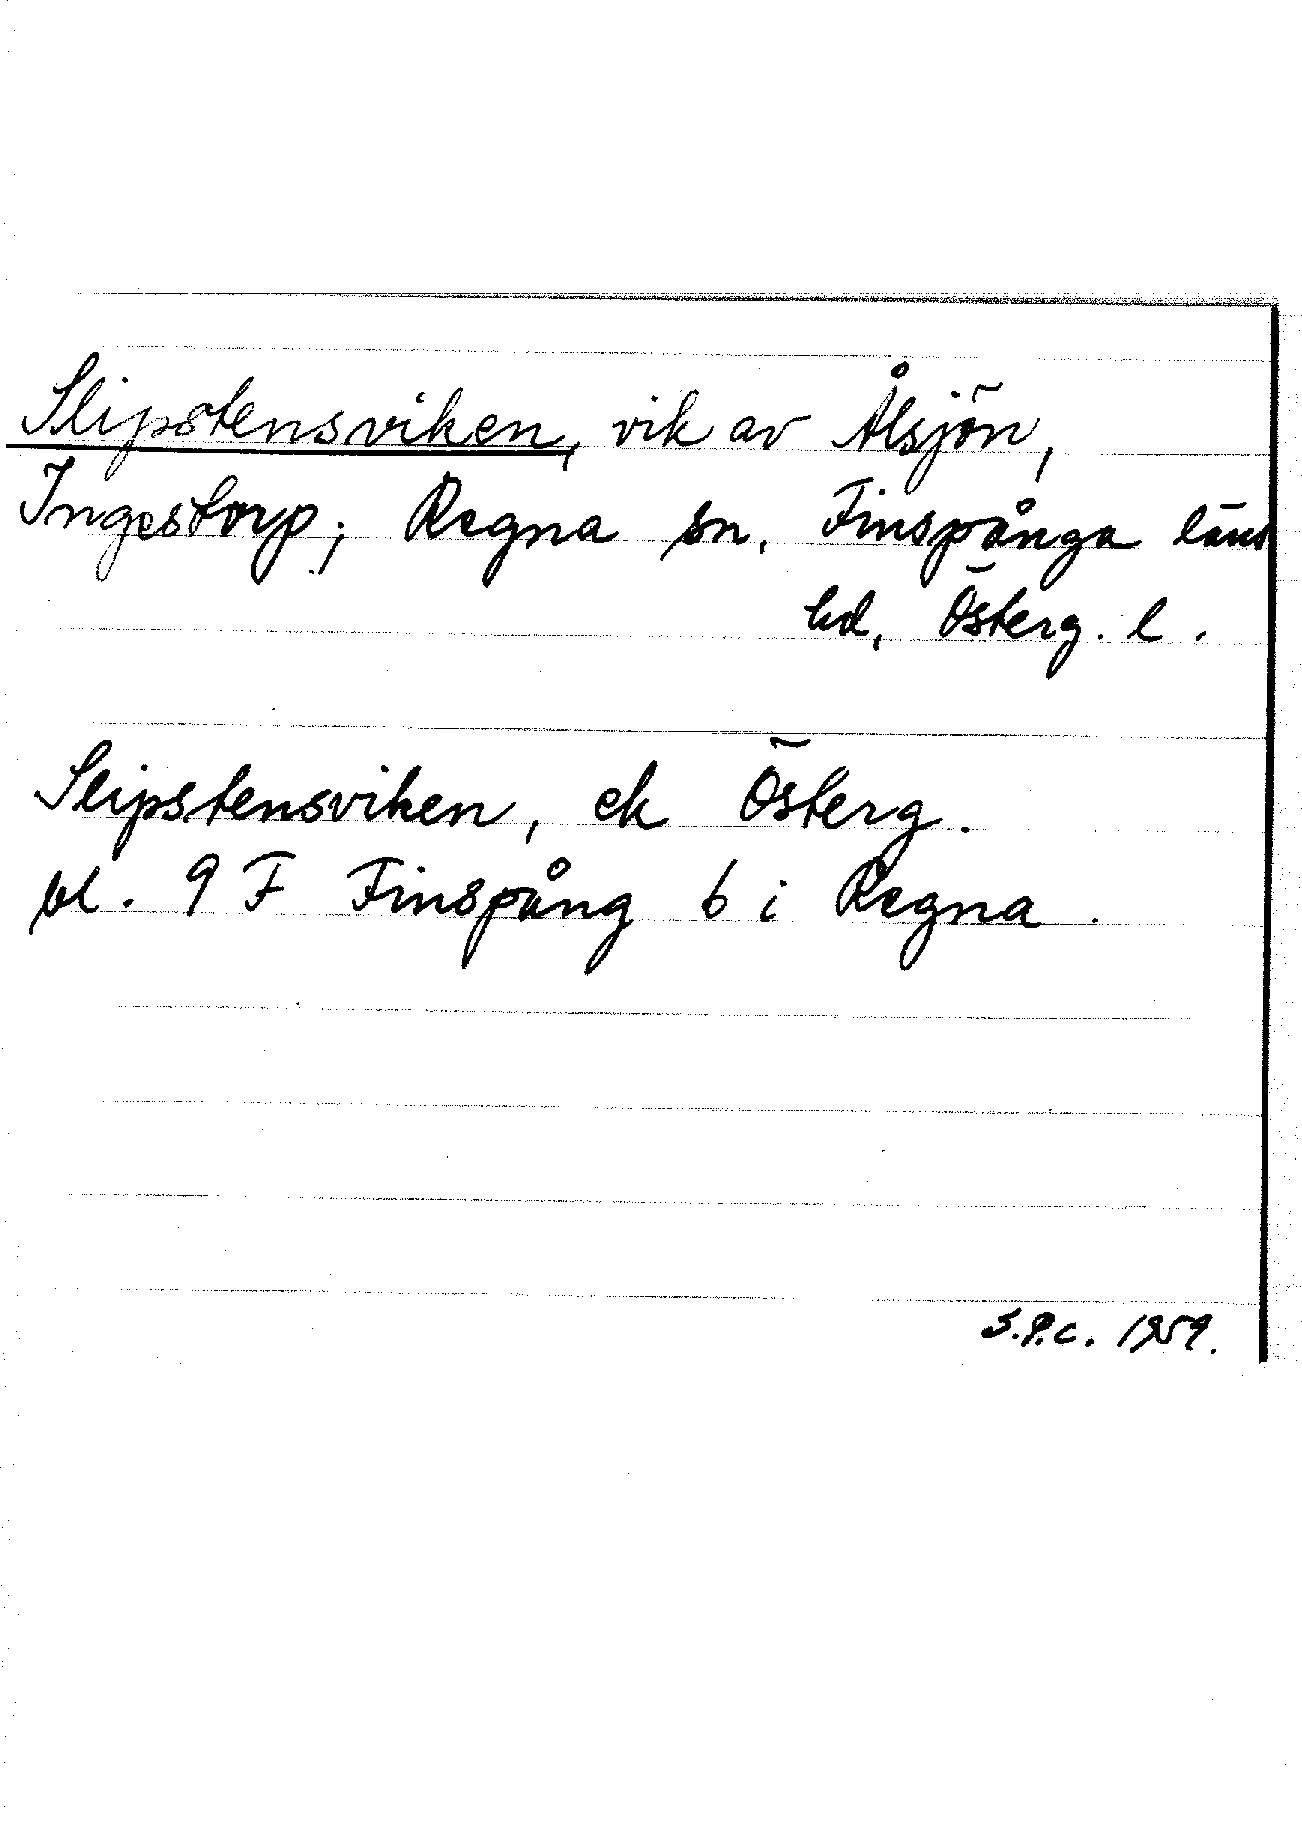 Slipstensviken, vik av Ålsjön,
Ingestorp; Regna sn, Finspånga läns
hd, Österg. l.
Slipstensviken, ek Österg.
bl. 9 F Finspång b i Regna.
S.P.C. 1959.